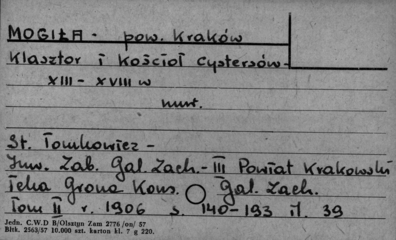 MOGIŁA - pow. Kraków
Klasztor i Kościoł Cystersów -
XIII - XVIII w
murr.
St. Tomkowicz -
Inw. Zab. Gal. Zach. - III Powiat Krakowski
Teka Grona Kons. Gal. Zach.
Tom II r. 1906 s. 140-193 il. 39
Jedn. C.W.D B/Olsztyn Zam 2776 /on/ 57
Bitk. 2563/57 10.000 szt. karton kl. 7 g 220.